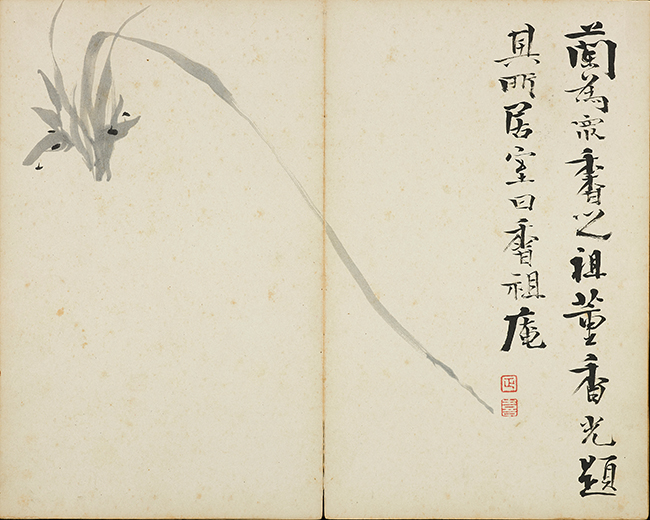 蘭為眾香之祖董香光題
其所居室曰香祖庵